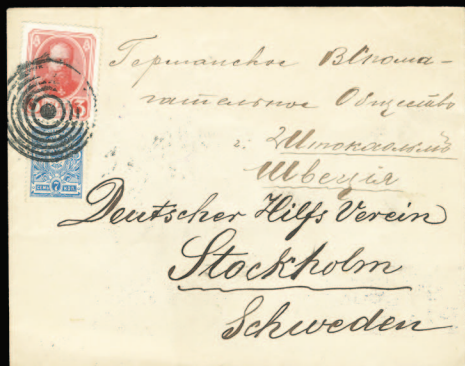 Германское Вспома-
гательное Общество
г. Штокгольмъ
Швеція
Deutscher Hilfs Verein
Stockholm
Schweden
3
7